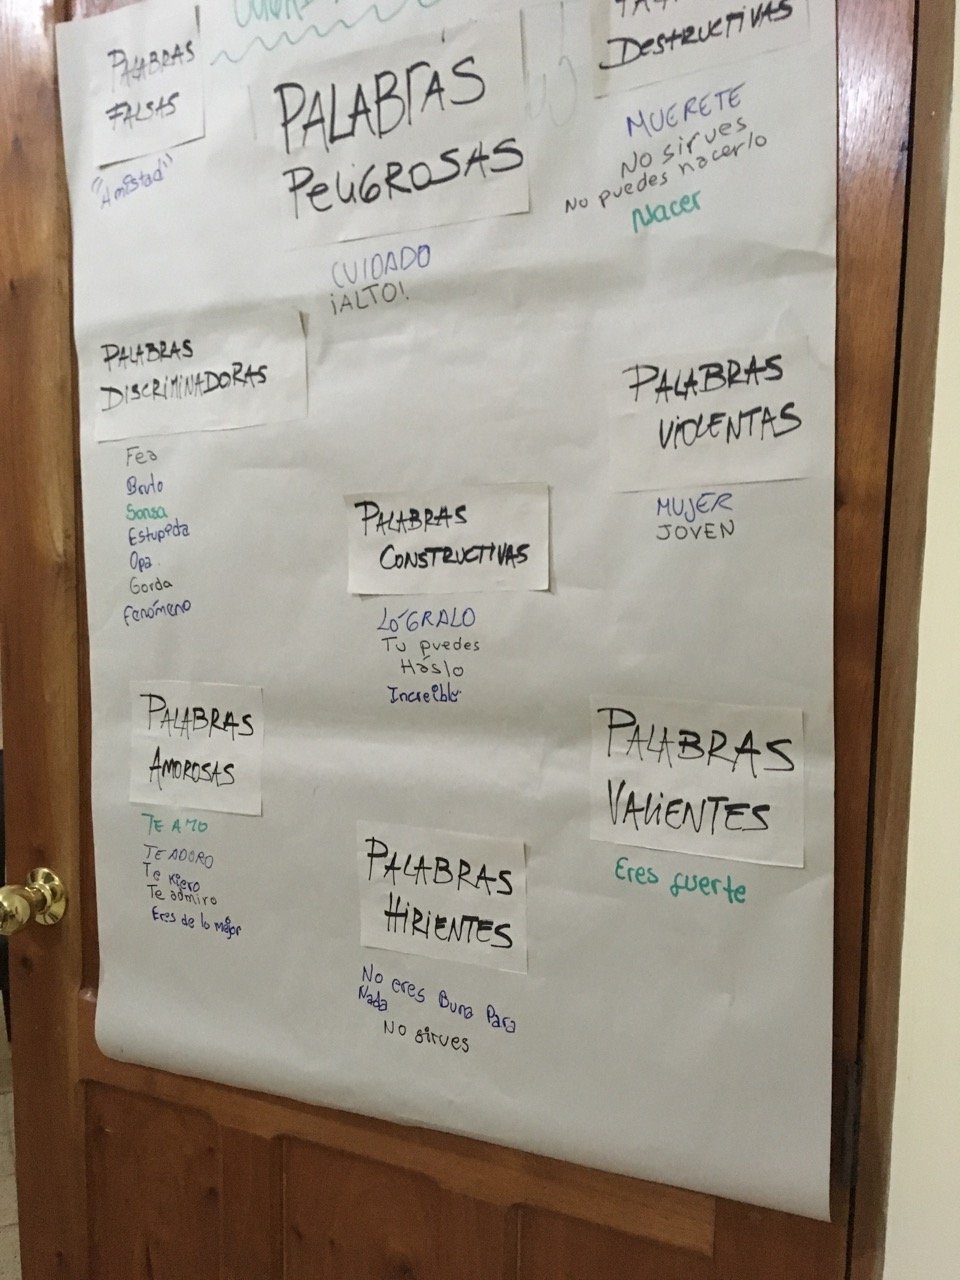 PALABRAS
FALSAS
"Amistad"
PALABRAS
PELIGROSAS
CUIDADO
¡ALTO!
DESTRUCTIVAS
MUERETE
No sirves
No puedes hacerlo
Nacer
PALABRAS
DISCRIMINADORAS
Fea
Bruto
Sonsa
Estupida
Opa.
Gorda
fenómeno
PALABRAS
VIOLENTAS
MUJER
JOVEN
PALABRAS
CONSTRUCTIVAS
LÓGRALO
Tu puedes
Háslo
Increible
PALABRAS
AMOROSAS
TE AMO
TE ADORO
Te kiero
Te admiro
Eres de lo mejor
PALABRAS
HIRIENTES
No eres Buna Para
Nada
No sirves
PALABRAS
VALIENTES
Eres fuerte